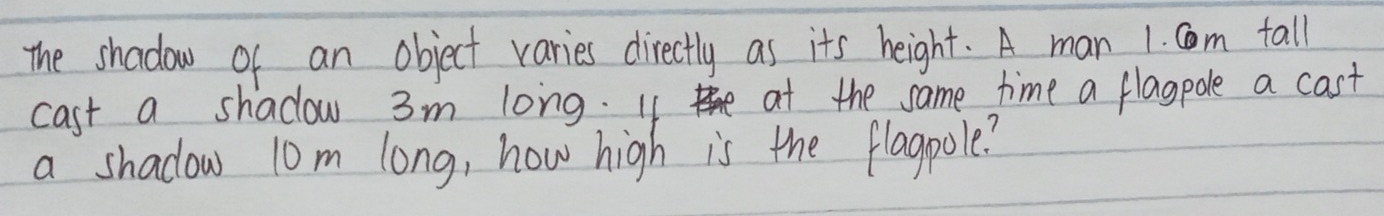 The shadow of an object varies directly as its height. A man 1.6m tall
cast a shadow 3m long. If at the same time a flagpole a cast
a shadow 10m long, how high is the flagpole?